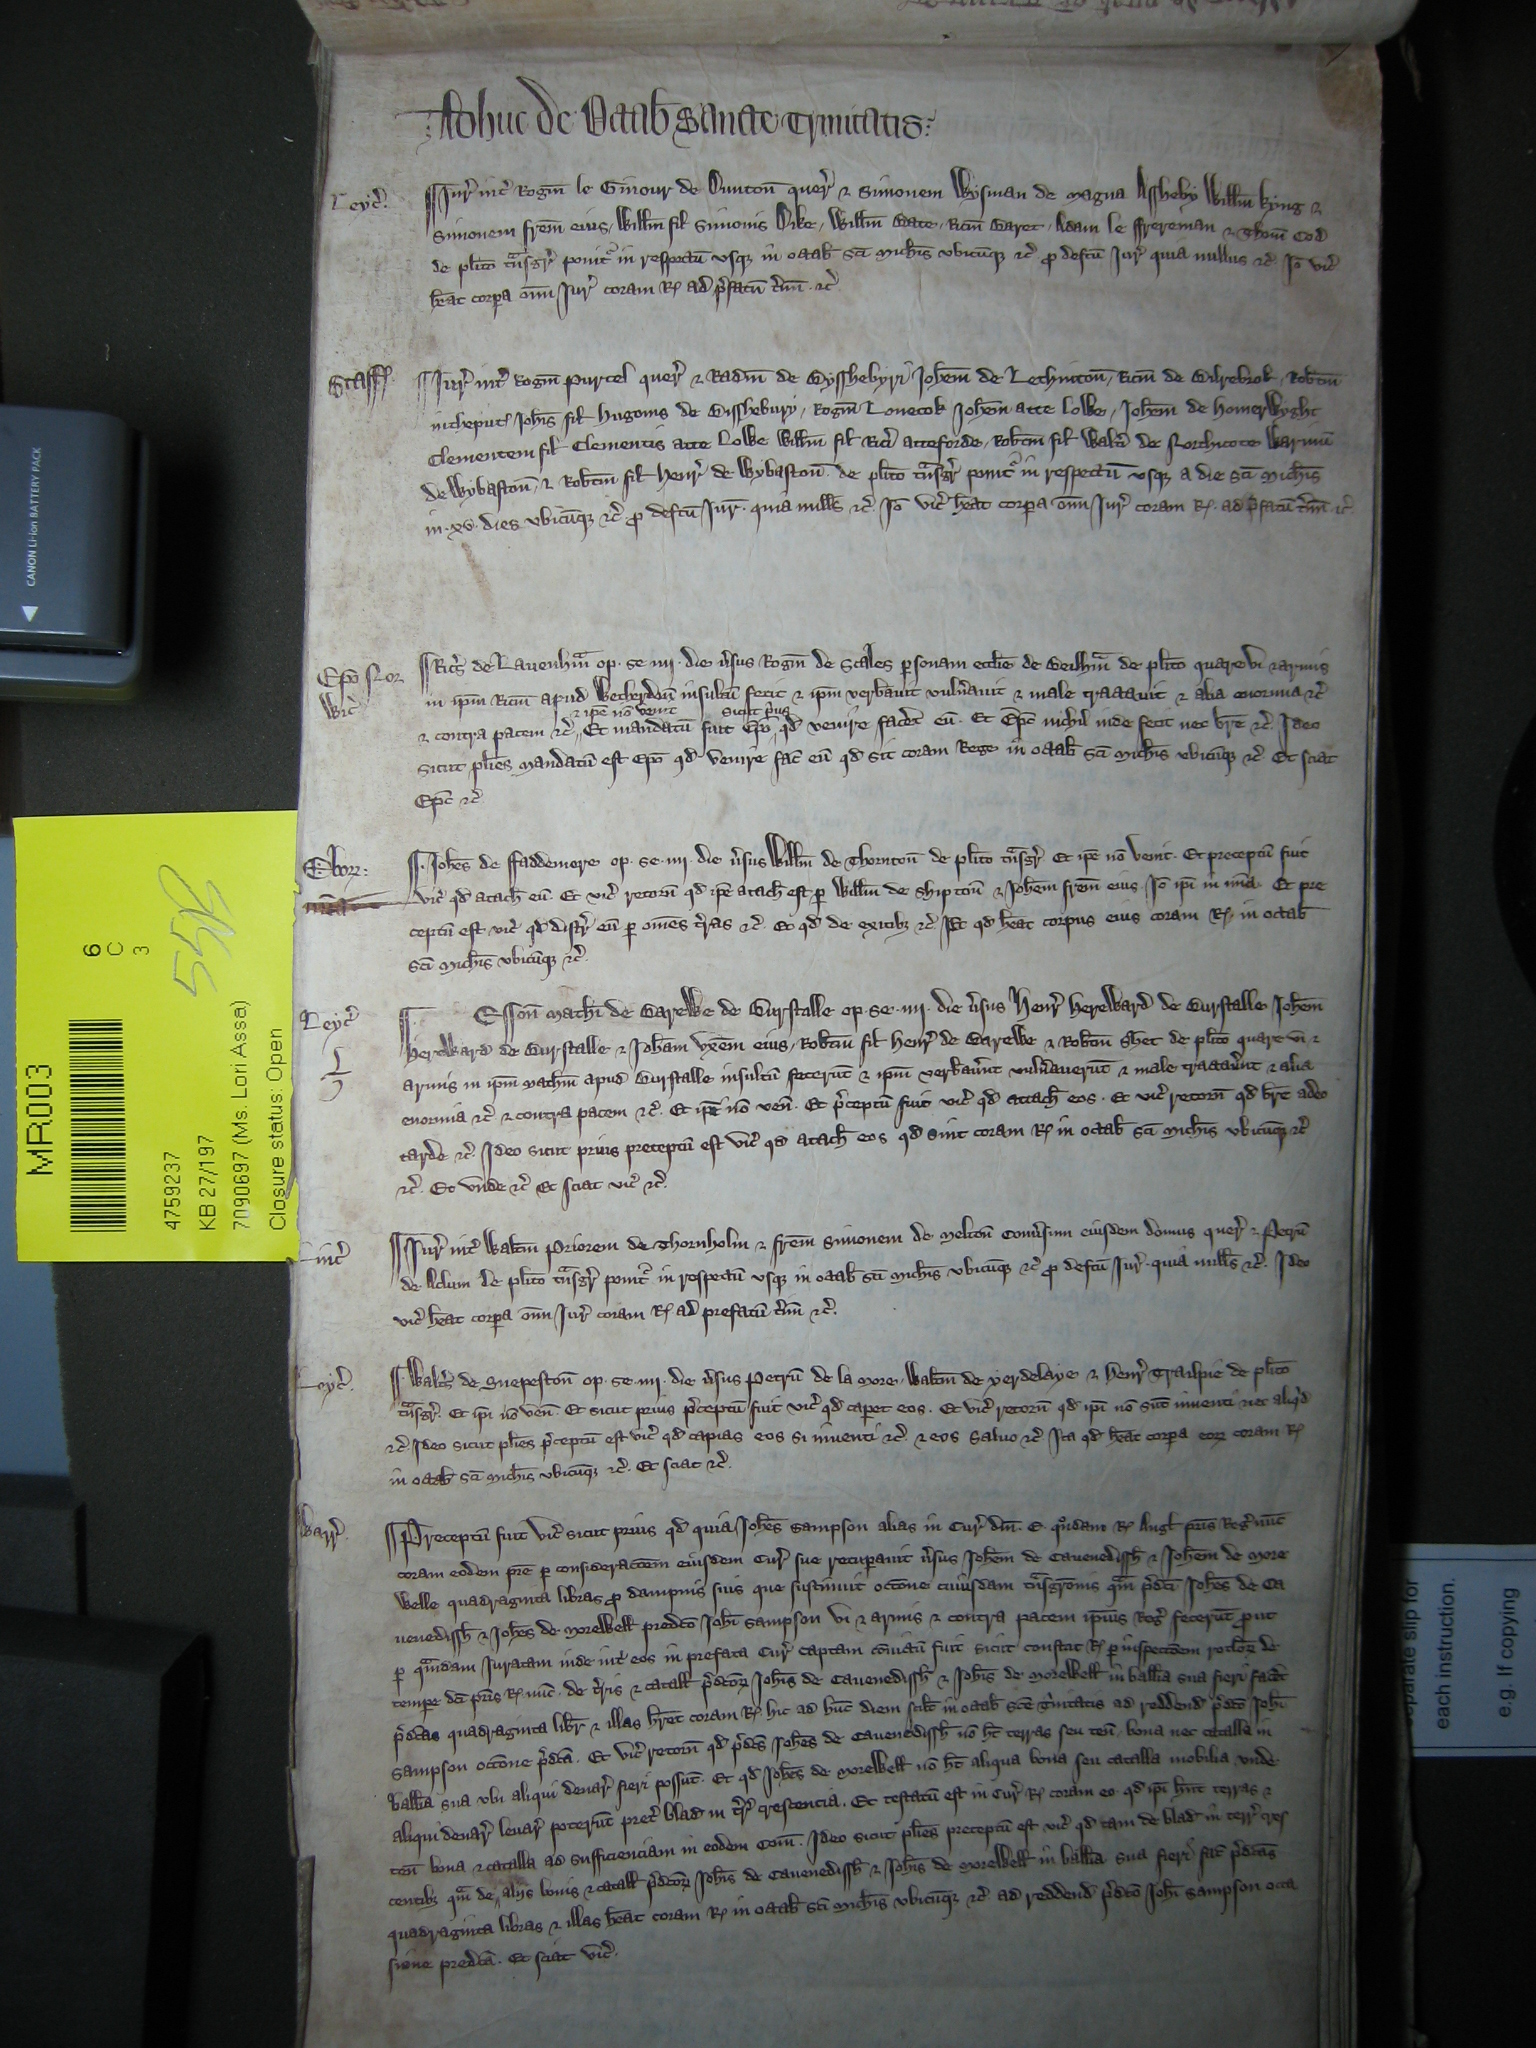 Adhuc de Octab Sancte Trinitatis
Leyc
Jur int Rogm le Ginour de Dunton quer & Simonem Wysman de magna Assheby Willm kyng &
Simonem frem eius Willm fil Simonis Dike Willm Bate Ricm Baret Adam le ffrereman & Thom Cod
de plito tnsgr ponit in respectu usq in octab sci Michis ubicuq &c p deftu Jur quia nullus &c Jo vic
heat corpa omi Jur coram R ad pfatu tmi &c
Staff
Jur int Rogm Purcel quer & Radm de Bysshebyri Johem de Lechinton Ricm de Bilrebrok Robtm
Johis fil Hugonis de Bisshebury Rogm Lovecok Johem atte Lowe Johem de Homerwyght
Clementem fil Clementis atte Lowe Willm fil Rici atteforde Robtm fil Walti de Northicote Warinu
de Wybaston & Robtm fil Henr de Wybaston de plito tnsgr ponit in respectu usq a die sci Michis
in xv dies ubicuq &c p deftu Jur quia nulls &c Jo vic heat corpa omi Jur coram R ad pfatu tmi &c
Epo Nor
wic
Rics de Lavenhm op se iiii die vsus Rogm de Scales psonam ecclie de Beilhm de plito quare vi & armis
in ipm Ricm apud Wetherden insultu fecit & ipm verbavit vulnavit & male tractavit & alia enormia &c
& ipe no venit sicut prius
& contra pacem &c Et mandatu fuit Epo qd venire facet eu Et Epc nichil inde fecit nec bre &c Ideo
sicut plies mandatu est Epo qd venire fac eu qd sit coram Rege in octab sci Michis ubicuq &c Et sciat
Epc &c
Ebor
mia
Johes de ffaddemere op se iiii die vsus Willm de Thornton de plito tnsgr Et ipe no venit Et preceptu fuit
vic qd atach eu Et vic retorn qd ipe atach est p Willm de Shipton & Johem frem eius Jo ipi in mia Et pre
ceptu est vic qd distr eu p omes tras &c Et qd de exitib &c Et qd heat corpus eius coram R in octab
sci Michis ubicuq &c
Leyc
Esson Mathi de Barewe de Burstalle op se iiii die vsus Henr Hereward de Burstalle Johem
Hereward de Burstalle & Joham uxem eius Robtm fil Henr de Barewe & Robtm de plito quare vi &
armis in ipm Mathm apud Burstalle insultu fecerut & ipm verbavnt vulnaverut & male tractavnt & alia
enormia &c & contra pacem &c Et ipi no ven Et pceptu fuit vic qd attach eos Et vic retorn qd bre adeo
tarde &c Ideo sicut prius preceptu est vic qd atach eos qd sint coram R in octab sci Michis ubicuq &c
&c Et unde &c Et sciat vic &c
Linc
Jur int Waltm Priorem de Thornholm & frem Simonem de Melton Convsum eiusdem domus quer & Petru
de Aclum de plito tnsgr ponit in respectu usq in octab sci Michis ubicuq &c p deftu Jur quia nulls &c Ideo
vic heat corpa omi Jur coram R ad prefatu tmi &c
Leyc
Walts de Snepeston op se iiii die vsus Petru de la More Waltm de Yerdelaye & Henr Trailpie de plito
tnsgr Et ipi no ven Et sicut prius pceptu fuit vic qd capet eos Et vic retorn qd ipi no sut inventi nec aliqd
&c Ideo sicut plies pceptu est vic qd capias eos si inventi &c & eos salvo &c Ita qd heat corpa eor coram R
in octab sci Michis ubicuq &c Et sciat &c
Warr
Preceptu fuit vic sicut prius qd quia Johes Sampson alias in Cur dni E quondam R Angl pris Reg nuc
coram eodem pre p consideracoem eiusdem Cur sue recupavit vsus Johem de Cavenedissh & Johem de More
welle quadraginta libras p dampnis suis que sustinuit occone cuiusdam tnsgronis qm pdci Johes de Ca
venedissh & Johes de Morewell predco Johi Sampson vi & armis & contra pacem ipius Reg fecerut prout
p qmdam Juratam inde int eos in prefata Cur captam convictu fuit sicut constat R p inspectoem rotlor de
tempe dci pris R nuc de tris & catall pdcor Johis de Cavenedissh & Johis de Morewell in ballia sua fieri facet
pdcas quadraginta libr & illas hret coram R hic ad huc diem scilt in octab sce Tnitatis ad reddend pdco Johi
Sampson occone pdca Et vic retorn qd pdcs Johes de Cavenedissh no ht terras seu ten bona nec catalla in
ballia sua ubi aliqui denar fieri possut Et qd Johes de Morewell no ht aliqua bona seu catalla mobilia unde
aliqui denar levar poterut pret blad in tr crescencia Et testatu est in Cur R coram eo qd ipi hnt terras &
ten bona & catalla ad sufficienciam in eodem Com Ideo sicut plies preceptu est vic qd tam de blad in terr cres
centib qm de aliis bonis & catall pdcor Johis de Cavenedissh & Johis de Morewell in ballia sua fieri fac pdcas
quadraginta libras & illas heat coram R in octab sci Michis ubicuq &c ad reddend pdco Johi Sampson occa
sione predca Et sciat vic
CANON Li-ion BATTERY PACK
MR003
6
C
3
55R
4759237
KB 27/197
7090697 (Ms. Lori Assa)
Closure status: Open
separate slip for
each instruction.
e.g. If copying